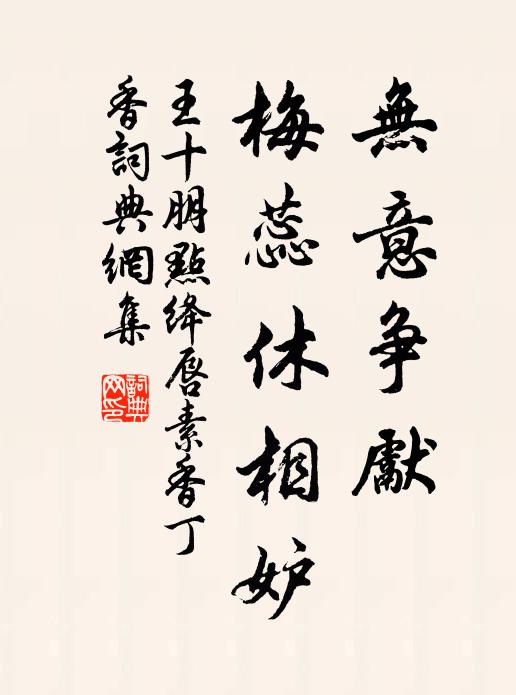 無意争獻
梅蕊休相妒
王十朋點绛唇素香丁
香詞典網集
詞典网印